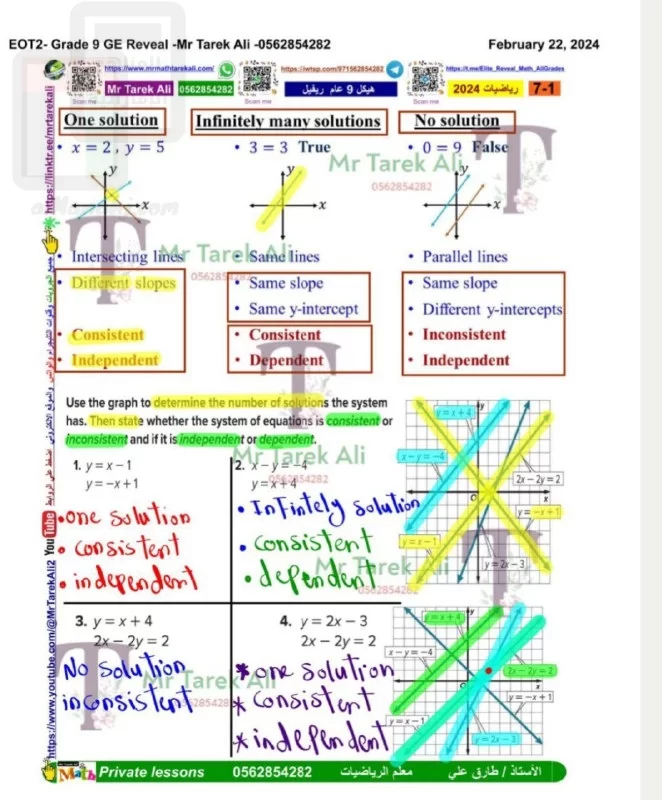 EOT2- Grade 9 GE Reveal -Mr Tarek Ali -0562854282
February 22, 2024
https://www.mrmathtarekali.com/
https://iwtsp.com/971562854282
https://t.me/Elite_Reveal_Math_AllGrades
Mr Tarek Ali 0562854282
هيكل 9 عام ريفيل
رياضيات 2024
7-1
Scan me
Scan me
Scan me
One solution
Infinitely many solutions
No solution
• x = 2 , y = 5
• 3 = 3 True
• 0 = 9 False
Mr Tarek Ali
0562854282
y
x
y
x
y
x
• Intersecting lines
• Same lines
• Parallel lines
Mr Tarek Ali
0562854282
• Different slopes
• Same slope
• Same slope
• Same y-intercept
• Different y-intercepts
• Consistent
• Consistent
• Inconsistent
• Independent
• Dependent
• Independent
Use the graph to determine the number of solutions the system
has. Then state whether the system of equations is consistent or
inconsistent and if it is independent or dependent.
Mr Tarek Ali
0562854282
1. y = x − 1
y = −x + 1
• one solution
• consistent
• independent
2. x − y = −4
y = x + 4
• Infintely solution
• consistent
• dependent
y = x + 4
y
x − y = −4
2x − 2y = 2
O
x
y = −x + 1
y = x − 1
y = 2x − 3
Mr Tarek Ali
0562854282
3. y = x + 4
2x − 2y = 2
No solution
inconsistent
4. y = 2x − 3
2x − 2y = 2
* one solution
* consistent
* independent
Mr Tarek Ali
0562854282
y = x + 4
y
x − y = −4
2x − 2y = 2
O
x
y = −x + 1
y = x − 1
y = 2x − 3
https://linktr.ee/mrtarekali
https://www.youtube.com/@MrTarekAli2 YouTube
Math Private lessons 0562854282 معلم الرياضيات الأستاذ / طارق علي